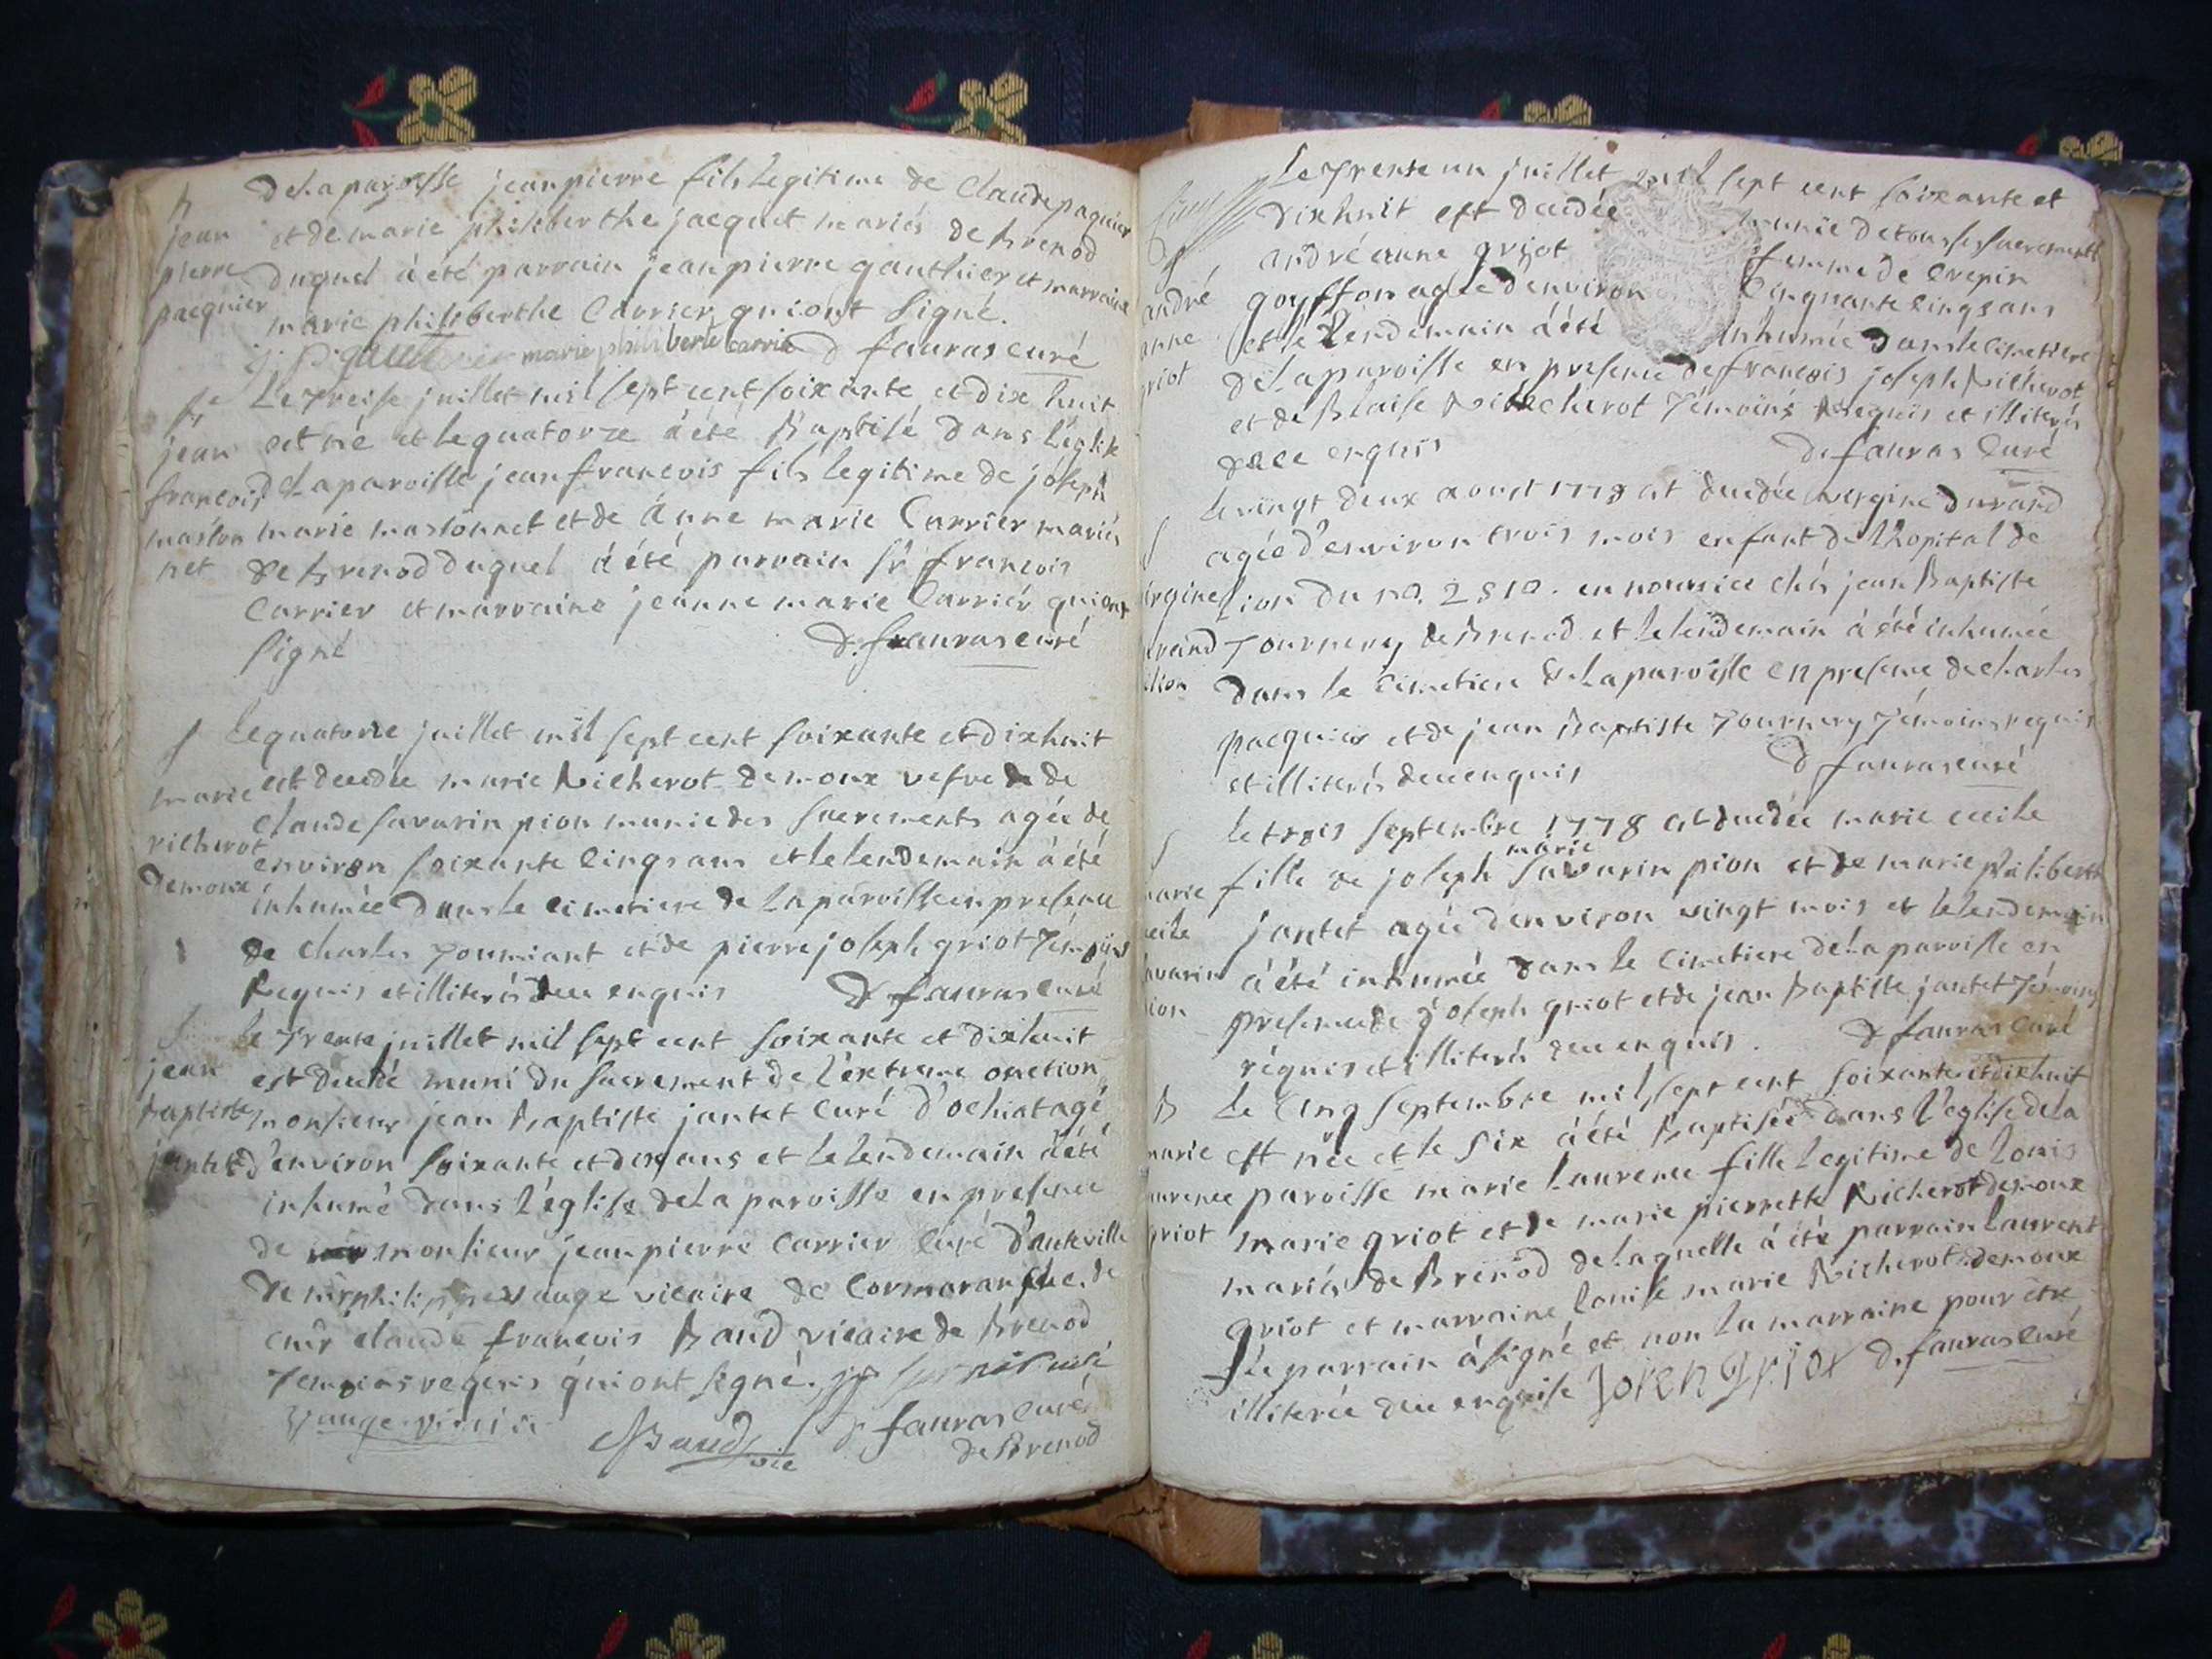 B
jean
pierre
pacquier
de la paroisse jean pierre fils legitime de Claude paquier
et de marie philiberthe jacquet mariés de Brenod
duquel à été parrain jean pierre gauthier et marraine
marie philiberthe Carrier qui ont signé.
marie philiberte carrier d fauras curé
jean
francois
maston
net
Le treise juillet mil sept cent soixante et dix huit
est né et le quatorze à été Baptisé dans l'eglise
de la paroisse jean francois fils legitime de joseph
marie mastonnet et de anne marie Carrier mariés
de Brenod duquel à été parrain sr francois
Carrier et marraine jeanne marie Carrier qui ont
signé d. fauras curé
S
marie
richerot
demoux
le quatorze juillet mil sept cent soixante et dix huit
est decedée marie Richerot demoux vefve de
Claude savarin pion munie des sacrements agée de
environ soixante cinq ans et le lendemain à été
inhumée dans le cimetiere de la paroisse en presence
de Charles Tourniant et de pierre joseph griot Témoins
Requis et illiterés de ce enquis d fauras curé
S
jean
Baptiste
jantet
Le Trente juillet mil sept cent soixante et dix huit
est decedé muni du sacrement de l'extreme onction
monsieur jean Baptiste jantet Curé d'ochiat agé
d'environ soixante et dix ans et le lendemain à été
inhumé dans l'église de la paroisse en presence
de monsieur jean pierre Carrier Curé d'auteville
de mr philippe vauge vicaire de Cormaranche. de
mr claude francois Baud vicaire de Brenod
Temoins réquis qui ont signé.
vauge vicaire
Baud vic d fauras curé
de Brenod
S
andré
anne
griot
Le Trente un juillet mil sept cent soixante et
dixhuit est decedée munie de tous ses sacrements
andréanne griot femme de Crepin
goyffon agée d'environ Cinquante cinq ans
et le lendemain à été inhumée dans le cimetiere
de la paroisse en presence de francois joseph Richerot
et de Blaise Richerot Témoins Requis et illiterés
de ce enquis d. fauras Curé
S
virgine
durand
lion
le vingt deux aoust 1778 est decedée virgine durand
agée d'environ trois mois enfant de l'hopital de
Lion du no. 2810. en nourice chés jean Baptiste
Tournery de Brenod et le lendemain à été inhumée
dans le cimetiere de la paroisse en presence de charles
pacquier et de jean Baptiste Tournery Témoins requis
et illiterés de ce enquis d fauras curé
S
marie
cecile
savarin
pion
le trois septembre 1778 est decedée marie cecile
marie
fille de joseph savarin pion et de marie philiberth
jantet agée d'environ vingt mois et le lendemain
à été inhumée dans le cimetiere de la paroisse en
presence de joseph griot et de jean Baptiste jantet Témoins
réquis et illiterés de ce enquis. d fauras curé
B
marie
laurence
griot
Le Cinq septembre mil sept cent soixante et dix huit
est née et le six à été Baptisée dans l'eglise de la
paroisse marie laurence fille legitime de Louis
marie griot et de marie pierrette Richerot demoux
mariés de Brenod de laquelle à été parrain laurent
griot et marraine louise marie Richerot demoux
Le parrain à signé et non la marraine pour etre
illiterée de ce enquise loren griot d. fauras curé